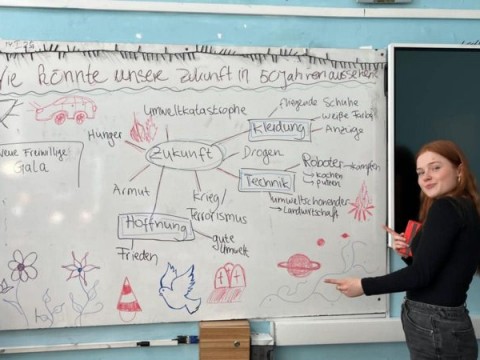 Wie könnte unsere Zukunft in 50 Jahren aussehen?
Umweltkatastrophe
fliegende Schuhe
Kleidung
weiße Farbe
Anzüge
Hunger
Zukunft
Drogen
neue Freiwillige
Gala
Roboter
kämpfen
kochen
putzen
Technik
Armut
Krieg/
Terrorismus
umweltschonender
Landwirtschaft
Hoffnung
gute
Umwelt
Frieden